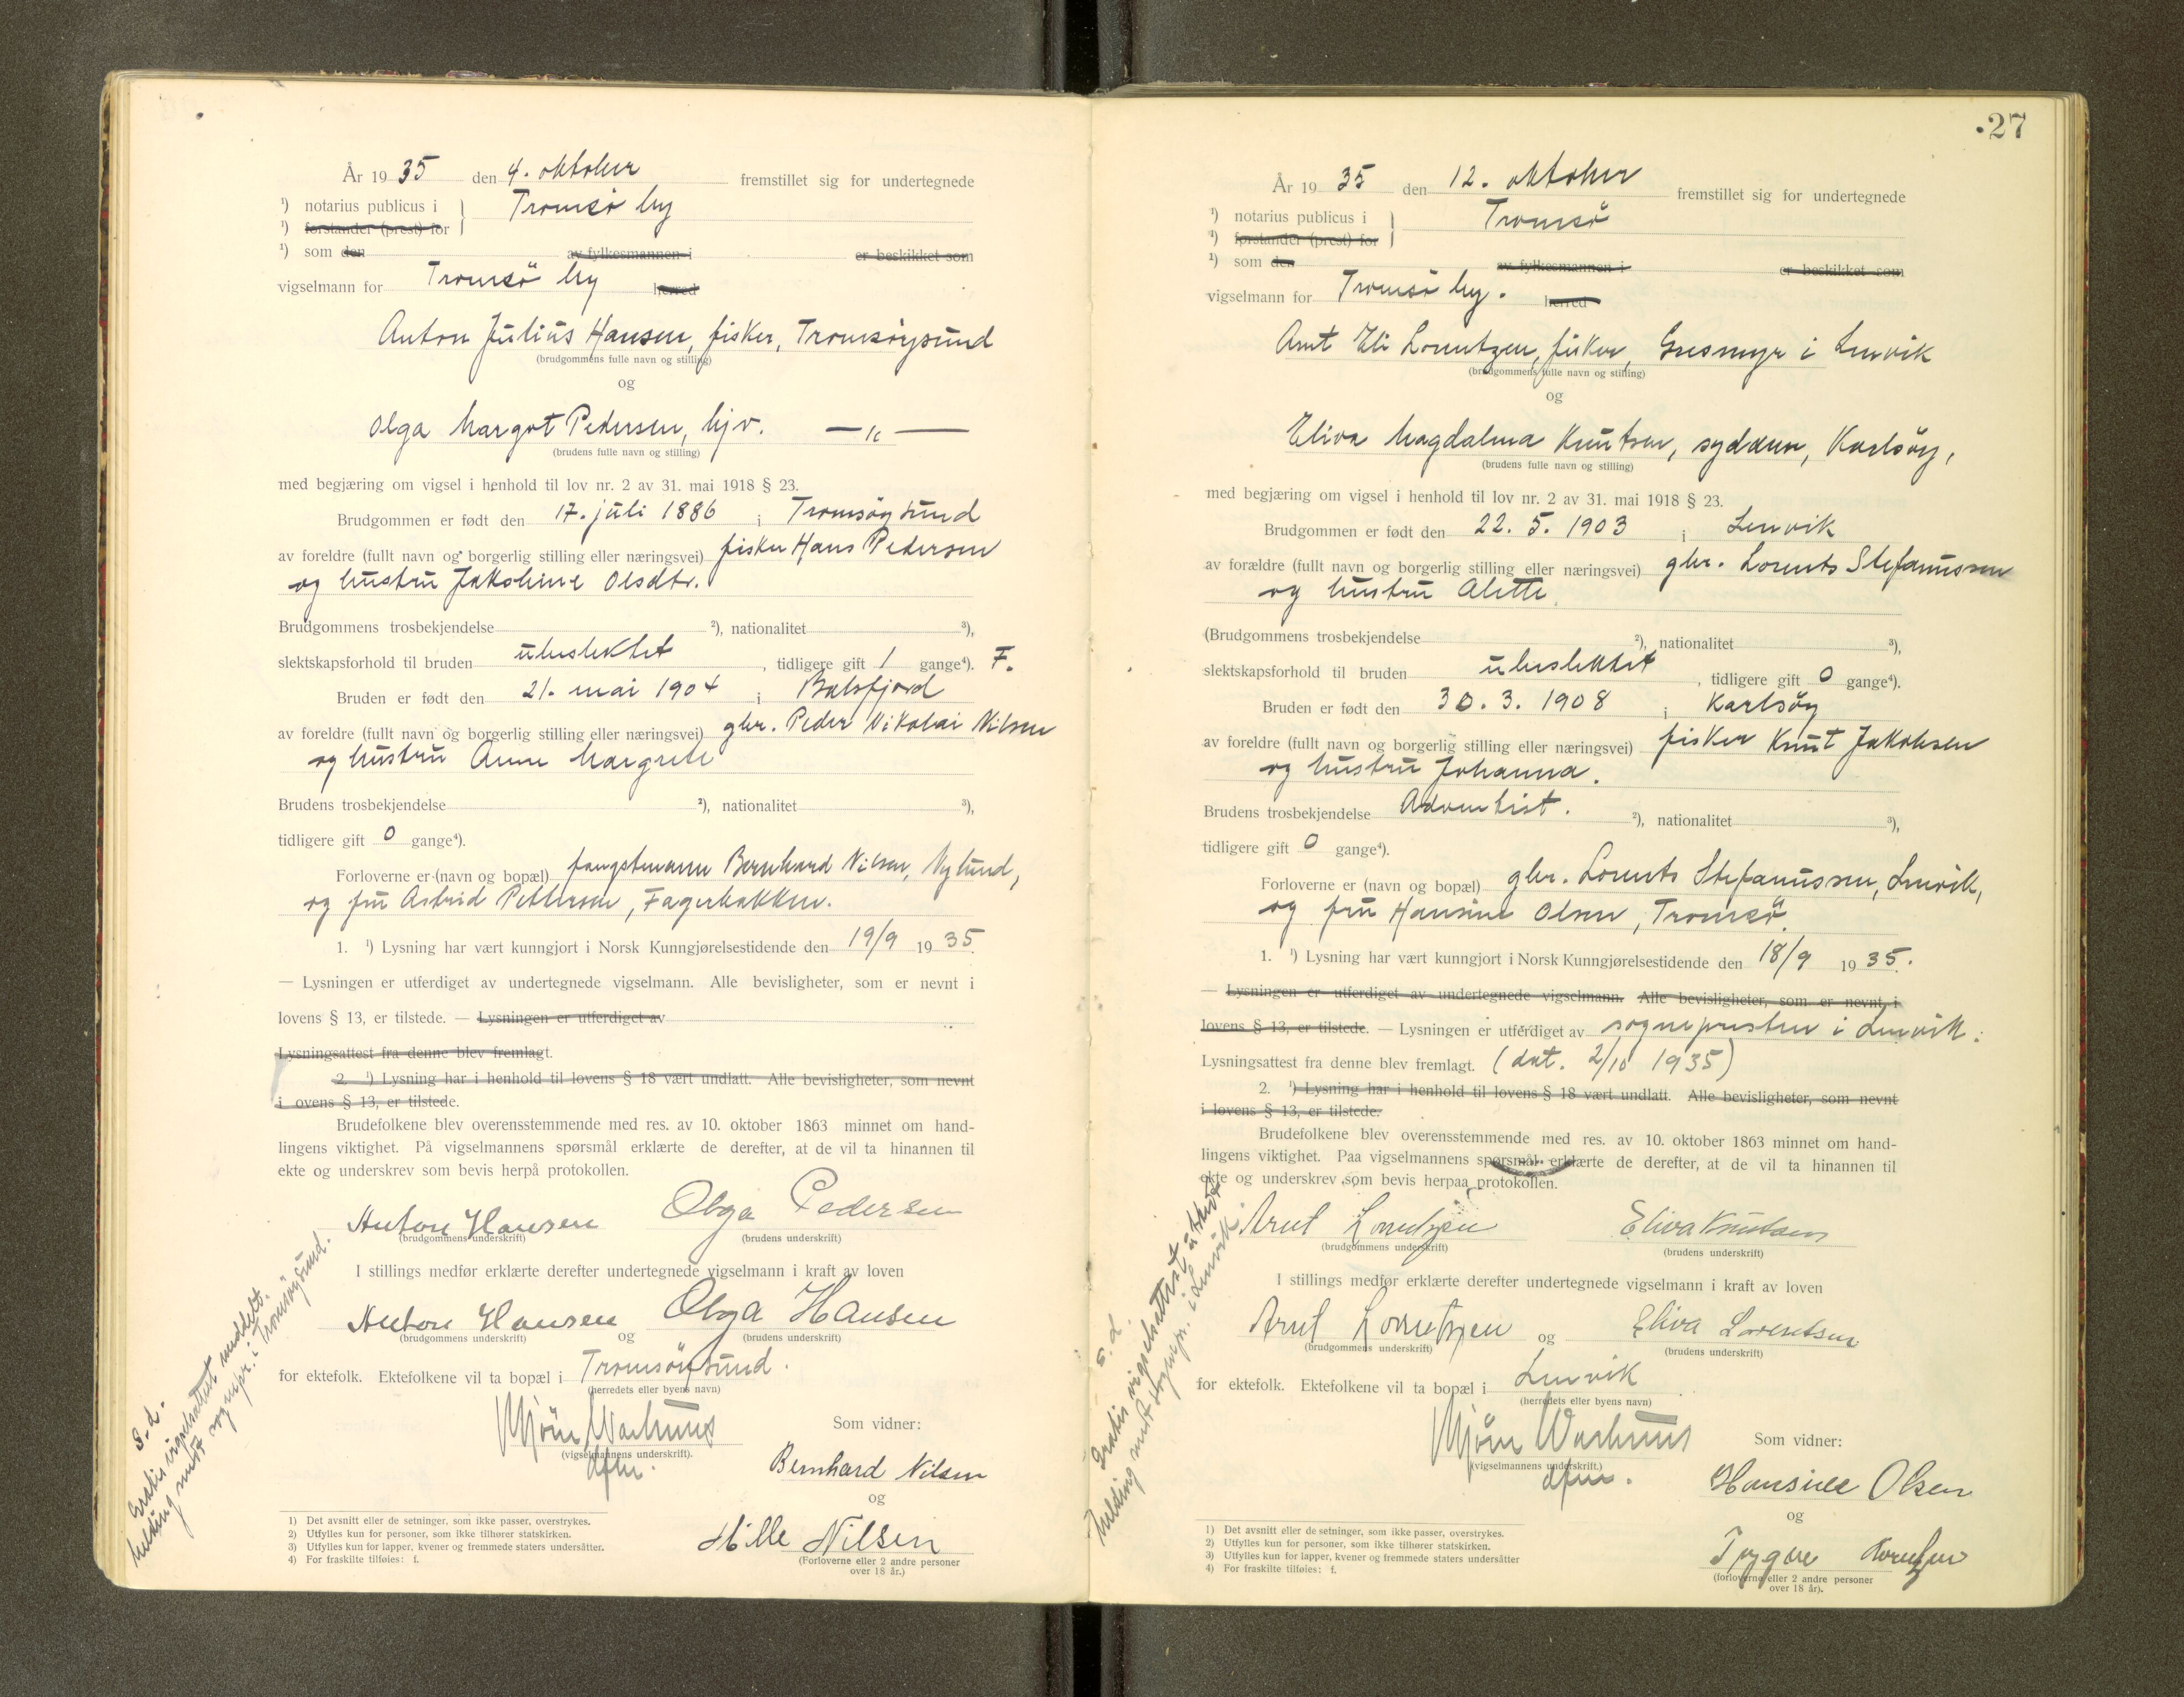 År 1935 den 4. oktober fremstillet sig for undertegnede
¹) notarius publicus i Tromsö by
¹) forstander (prest) for
¹) som den av fylkesmannen i er beskikket som
vigselmann for Tromsö by herred
Anton Julius Hansen, fisker, Tromsöysund
(brudgommens fulle navn og stilling)
og
Olga Margot Pedersen, hjv. —"—
(brudens fulle navn og stilling)
med begjæring om vigsel i henhold til lov nr. 2 av 31. mai 1918 § 23.
Brudgommen er født den 17. juli 1886 i Tromsöysund
av foreldre (fullt navn og borgerlig stilling eller næringsvei) fisker Hans Pedersen
og hustru Jakobine Olsdtr.
Brudgommens trosbekjendelse ²), nationalitet ³),
slektskapsforhold til bruden ubeslektet, tidligere gift 1 gange⁴). F.
Bruden er født den 21. mai 1904 i Balsfjord
av foreldre (fullt navn og borgerlig stilling eller næringsvei) gbr. Peder Nikolai Nilsen
og hustru Anne Margrete
Brudens trosbekjendelse ²), nationalitet ³),
tidligere gift 0 gange⁴).
Forloverne er (navn og bopæl) fangstmann Bernhard Nilsen, Nylund,
og fru Astrid Pettersen, Fagerbakken.
1. ¹) Lysning har vært kunngjort i Norsk Kunngjørelsestidende den 19/9 1935.
— Lysningen er utferdiget av undertegnede vigselmann. Alle bevisligheter, som er nevnt i
lovens § 13, er tilstede. — Lysningen er utferdiget av
Lysningsattest fra denne blev fremlagt.
2. ¹) Lysning har i henhold til lovens § 18 vært undlatt. Alle bevisligheter, som nevnt
i ovens § 13, er tilstede.
Brudefolkene blev overensstemmende med res. av 10. oktober 1863 minnet om hand-
lingens viktighet. På vigselmannens spørsmål erklærte de derefter, at de vil ta hinannen til
ekte og underskrev som bevis herpå protokollen.
Anton Hansen Olga Pedersen
(brudgommens underskrift) (brudens underskrift)
I stillings medfør erklærte derefter undertegnede vigselmann i kraft av loven
Anton Hansen og Olga Hansen
(brudgommens underskrift) (brudens underskrift)
for ektefolk. Ektefolkene vil ta bopæl i Tromsöysund.
(herredets eller byens navn)
(vigselmannens underskrift).
Som vidner:
Bernhard Nilsen
og
Hille Nilsen
(Forloverne eller 2 andre personer
over 18 år.)
S.d.
Gratis vigselsattest meddelt.
Melding sendt sognepr. i Tromsöysund.
1) Det avsnitt eller de setninger, som ikke passer, overstrykes.
2) Utfylles kun for personer, som ikke tilhører statskirken.
3) Utfylles kun for lapper, kvener og fremmede staters undersåtter.
4) For fraskilte tilføies: f.
27
År 1935 den 12. oktober fremstillet sig for undertegnede
¹) notarius publicus i Tromsö
¹) forstander (prest) for
¹) som den av fylkesmannen i er beskikket som
vigselmann for Tromsö by. herred
Arnt Eli Lorentzen, fisker, Gresmyr i Lenvik
(brudgommens fulle navn og stilling)
og
Eliva Magdalena Knutsen, sydame, Karlsöy,
(brudens fulle navn og stilling)
med begjæring om vigsel i henhold til lov nr. 2 av 31. mai 1918 § 23.
Brudgommen er født den 22. 5. 1903 i Lenvik
av forældre (fullt navn og borgerlig stilling eller næringsvei) gbr. Lorents Stefanussen
og hustru Alette
(Brudgommens trosbekjendelse ²), nationalitet ³),
slektskapsforhold til bruden ubeslektet, tidligere gift 0 gange⁴).
Bruden er født den 30. 3. 1908 i Karlsöy
av foreldre (fullt navn og borgerlig stilling eller næringsvei) fisker Knut Jakobsen
og hustru Johanna.
Brudens trosbekjendelse Adventist. ²), nationalitet ³),
tidligere gift 0 gange⁴).
Forloverne er (navn og bopæl) gbr. Lorents Stefanussen, Lenvik,
og fru Hansine Olsen, Tromsö.
1. ¹) Lysning har vært kunngjort i Norsk Kunngjørelsestidende den 18/9 1935.
— Lysningen er utferdiget av undertegnede vigselmann. Alle bevisligheter, som er nevnt, i
lovens § 13, er tilstede. — Lysningen er utferdiget av sognepresten i Lenvik.
Lysningsattest fra denne blev fremlagt. (dat. 2/10 1935)
2. ¹) Lysning har i henhold til lovens § 18 vært undlatt. Alle bevisligheter, som nevnt
i lovens § 13, er tilstede.
Brudefolkene blev overensstemmende med res. av 10. oktober 1863 minnet om hand-
lingens viktighet. Paa vigselmannens spørsmål erklærte de derefter, at de vil ta hinannen til
ekte og underskrev som bevis herpaa protokollen.
Arnt Lorentzen Eliva Knutsen
(brudgommens underskrift) (brudens underskrift)
I stillings medfør erklærte derefter undertegnede vigselmann i kraft av loven
Arnt Lorentzen og Eliva Lorentsen
(brudgommens underskrift) (brudens underskrift)
for ektefolk. Ektefolkene vil ta bopæl i Lenvik
(herredets eller byens navn)
(vigselmannens underskrift.)
Som vidner:
Hansine Olsen
og
Trygve Lorentzen
(forloverne eller 2 andre personer
over 18 år).
S.d.
Gratis vigselsattest utstedt
Melding sendt sognepr. i Lenvik.
1) Det avsnitt eller de setninger, som ikke passer, overstrykes.
2) Utfylles kun for personer, som ikke tilhører statskirken.
3) Utfylles kun for lapper, kvener og fremmede staters undersåtter
4) For fraskilte tilføies: f.